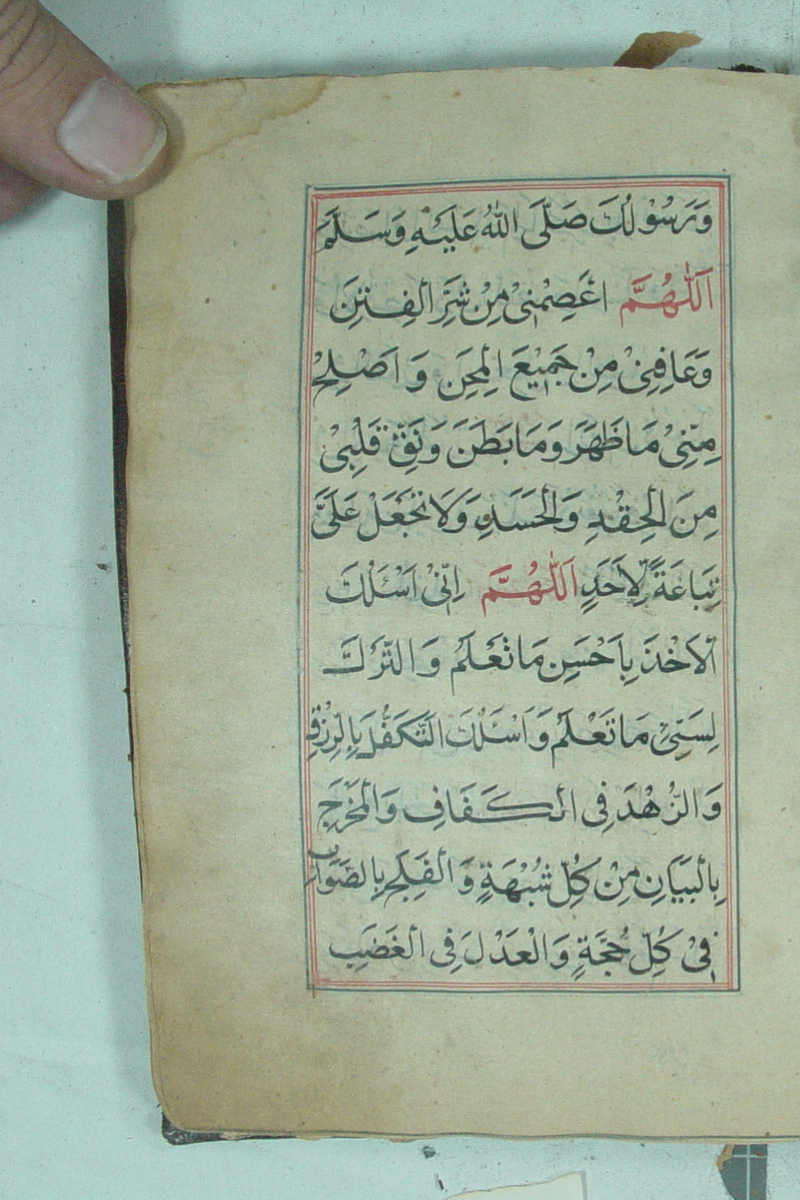 وَرَسُوْلِكَ صَلَّى اللّٰهُ عَلَيْهِ وَسَلَّمَ
اَللّٰهُمَّ اعْصِمْنِيْ مِنْ شَرِّ الْفِتَنِ
وَعَافِنِيْ مِنْ جَمِيْعِ الْمِحَنِ وَاَصْلِحْ
مِنِّيْ مَا ظَهَرَ وَمَا بَطَنَ وَنَقِّ قَلْبِيْ
مِنَ الْحِقْدِ وَالْحَسَدِ وَلَا تَجْعَلْ عَلَيَّ
تِبَاعَةً لِّاَحَدٍ اَللّٰهُمَّ اِنِّيْ اَسْئَلُكَ
الْاَخْذَ بِاَحْسَنِ مَا تَعْلَمُ وَالتَّرْكَ
لِسَيِّئِ مَا تَعْلَمُ وَاَسْئَلُكَ التَّكَفُّلَ بِالرِّزْقِ
وَالزُّهْدَ فِي الْكَفَافِ وَالْمَخْرَجَ
بِالْبَيَانِ مِنْ كُلِّ شُبْهَةٍ وَالْفَلَجَ بِالصَّوَابِ
فِيْ كُلِّ حُجَّةٍ وَالْعَدْلَ فِي الْغَضَبِ